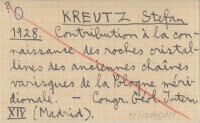 KREUTZ Stefan
1928. Contribution à la con-
naissance des roches cristal-
lines des anciennes chaînes
varisques de la Pologne méri-
dionale. - Congr. Géol. Intern.
XIV (Madrid).